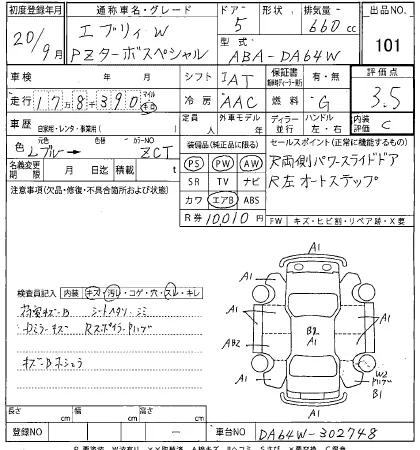 初度登録年月 通称車名・グレード ドアー 形状 排気量 出品NO
20/9月 エブリィW 5 660cc
PZターボスペシャル 型式 ABA-DA64W 101
車検 年 月 シフト IAT 保証書 有・無 評価点
走行 17万8千390 マイル km 冷房 AAC 燃料 G 3.5
車歴 自家用・レンタ・事業用( ) 定員 人 外車モデル 年 ディーラー 並行 ハンドル 左・右 内装評価 C
色 元色 ブルー → 色替 カラーNO ZCT
装備品(純正品に限る) セールスポイント(正常に機能するもの)
名義変更期限 月 日迄 リサイクル預託金 積載量 t
PS PW AW R両側パワースライドドア
注意事項(欠品・修復・不具合箇所および状態)
SR TV ナビ R左オートステップ
カワ エアB ABS
R券 10,010円 FW キズ・ヒビ割・リペア跡・X要
検査員記入 内装 キズ・汚レ・コゲ・穴・スレ・キレ
荷室キズ・B シートヘタリ・シミ
Dミラーキズ RスポイラーPリップ
キズ・Bホシュウ
A1
A1 A1
A1 B2 A1
AB2 A1 A1
W2
Pリップ
A1 B1
長さ cm 幅 cm 高さ cm
登録NO — 車台NO DA64W-302748